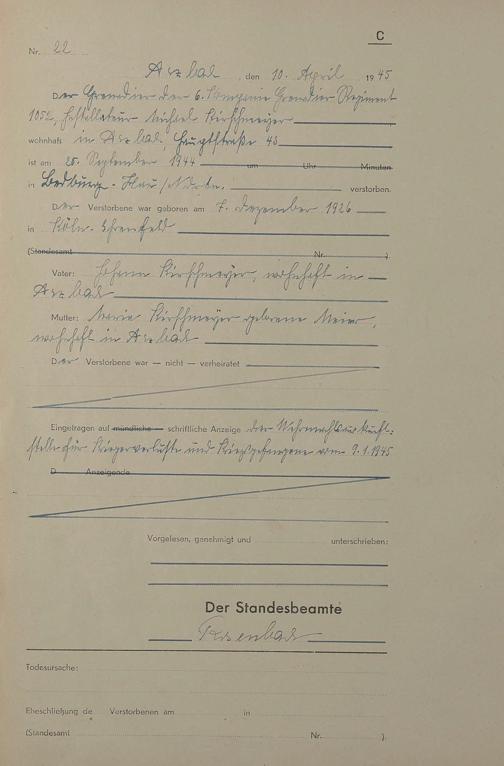 C
Nr. 22
Arzbach, den 10. April 1945
Der Grenadier der 6. Kompanie Grenadier Regiment
1052, Michael Kirschmeyer
wohnhaft in Hauptstraße 43
ist am 25. September 1944 um Uhr Minuten
in Bedburg-Hau / verstorben.
Der Verstorbene war geboren am 7. Dezember 1926
in Köln-Ehrenfeld
(Standesamt Nr. )
Vater: Johann Kirschmeyer, wohnhaft in
Mutter: Maria Kirschmeyer geborene Meier,
wohnhaft in
Der Verstorbene war — nicht — verheiratet
Eingetragen auf mündliche — schriftliche Anzeige der Wehrmachtauskunft-
stelle für Kriegerverluste und Kriegsgefangene vom 9.1.1945
D Anzeigende
Vorgelesen, genehmigt und unterschrieben:
Der Standesbeamte
Todesursache:
Eheschließung de Verstorbenen am in
(Standesamt Nr. ).